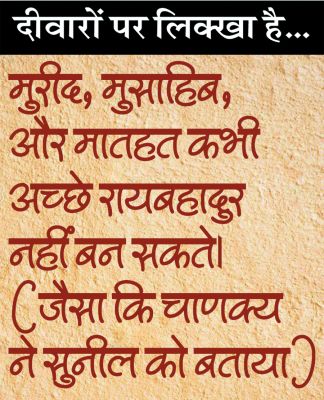 दीवारों पर लिक्खा है...
मुरीद, मुसाहिब,
और मातहत कभी
अच्छे रायबहादुर
नहीं बन सकते।
(जैसा कि चाणक्य
ने सुनील को बताया)